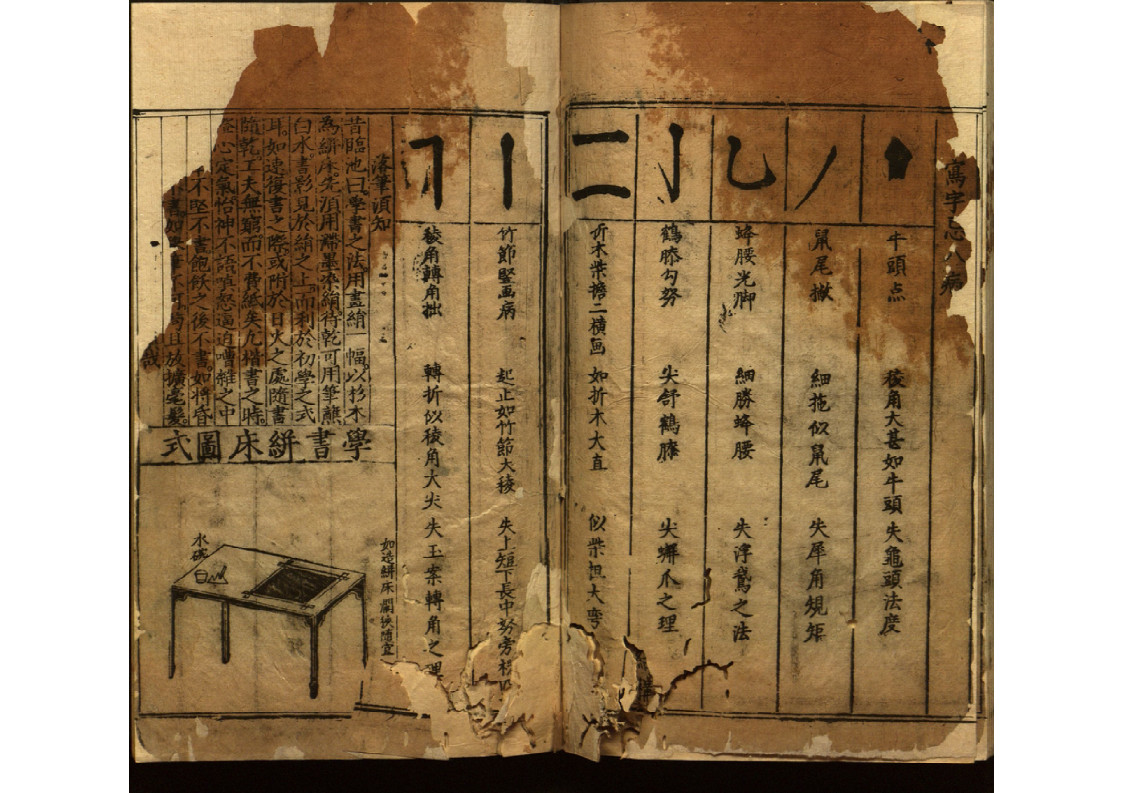 寫字忌八病
牛頭点 稜角大甚如牛頭 失龜頭法度
鼠尾撇 細拖似鼠尾 失犀角規矩
蜂腰光脚 細勝蜂腰 失浮鵞之法
鶴膝勾努 尖舒鶴膝 失蠏爪之理
折木柴擔二横画 如折木大直 似柴担大弯
竹節竪画病 起止如竹節大稜 失上短下長中努旁
稜角轉角拙 轉折似稜角大尖 失玉案轉角之理
落筆須知
昔臨池曰學書之法用畫絹一幅以杉木
為絣床先須用濃墨染絹待乾可用筆蘸
白水書影見於絹之上而利於初學之式
耳如速後書之際或附於日火之處隨書
隨乾工夫無窮而不費紙矣凡楷書之時
心定氣怡神不語嗔怒逼迫嘈雜之中
不堅不書飽飲之後不書如將昏
書如 且放擴毫髮
哉
學書絣床圖式
水碗
如造絣床濶狹隨宜